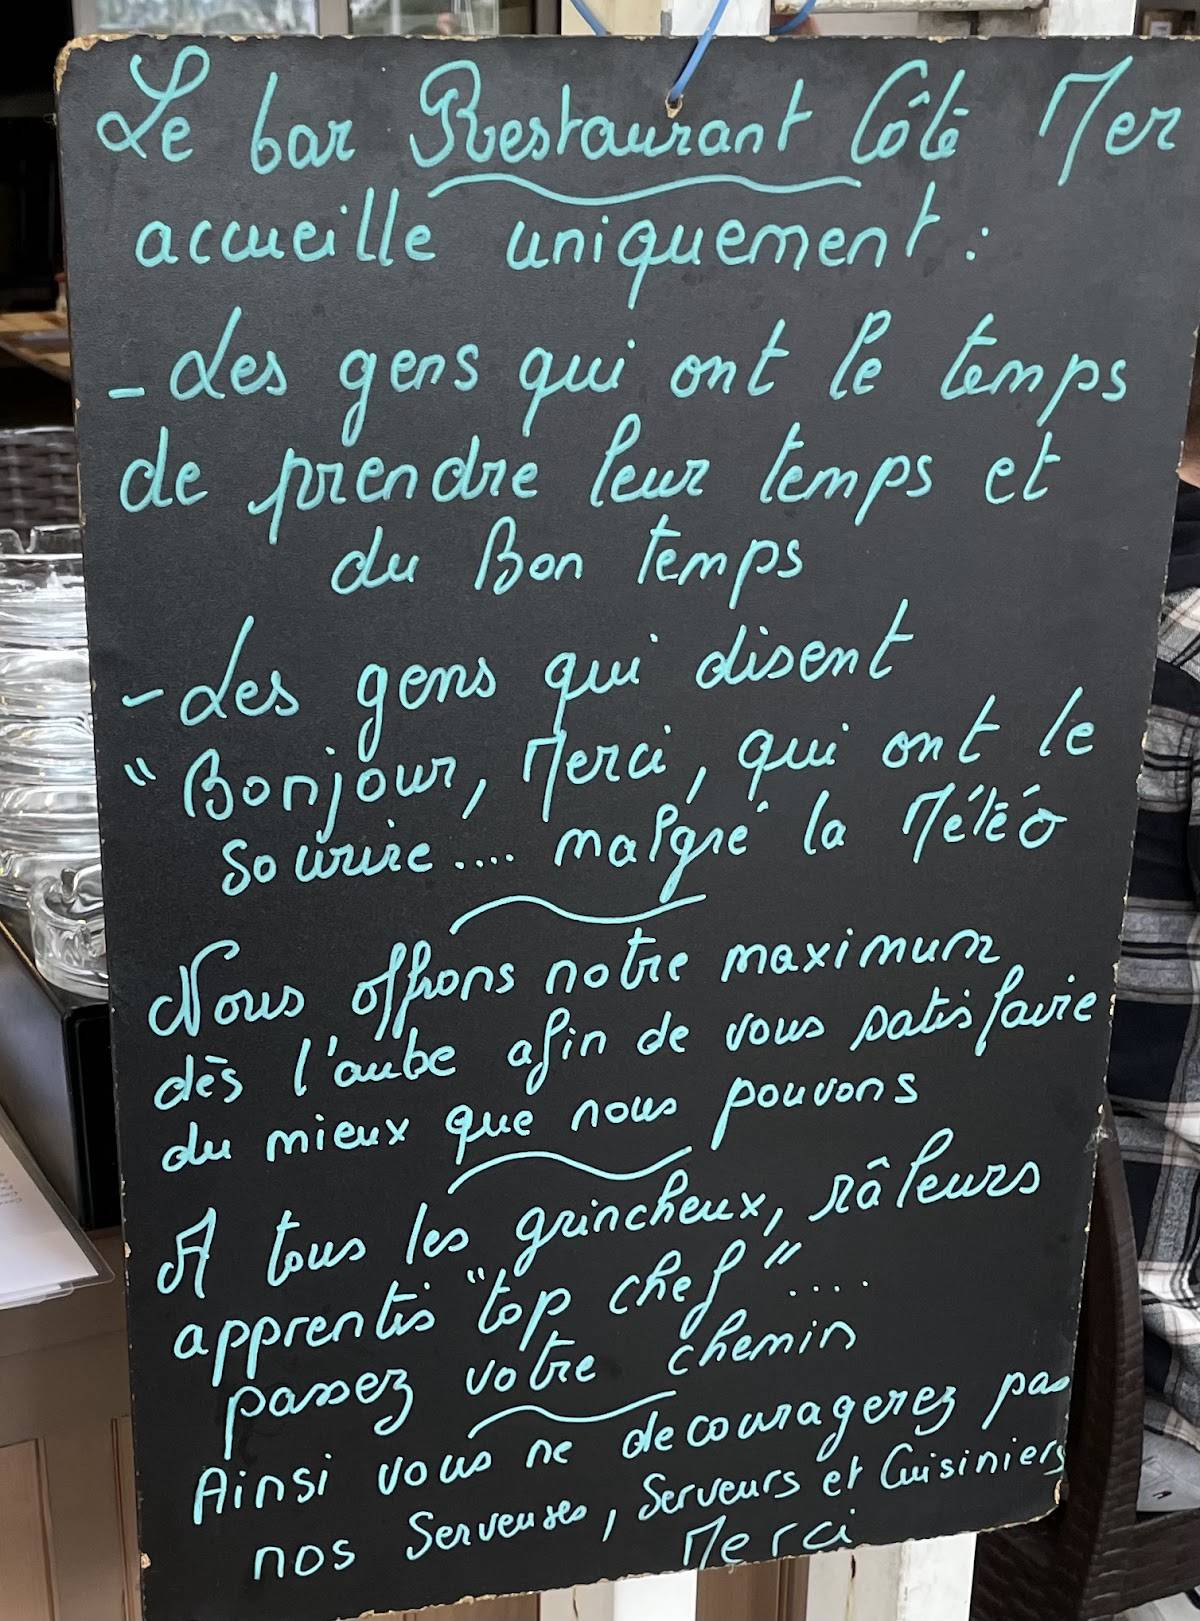 Le bar Restaurant Côté Mer
accueille uniquement :
- Les gens qui ont le temps
de prendre leur temps et
du Bon temps
- Les gens qui disent
"Bonjour, Merci, qui ont le
sourire .... malgré la Météo
Nous offrons notre maximum
dès l'aube afin de vous satisfaire
du mieux que nous pouvons
A tous les grincheux, râleurs
apprentis "top chef"....
passez votre chemin
Ainsi vous ne decouragerez pas
nos Serveuses, Serveurs et Cuisiniers
Merci